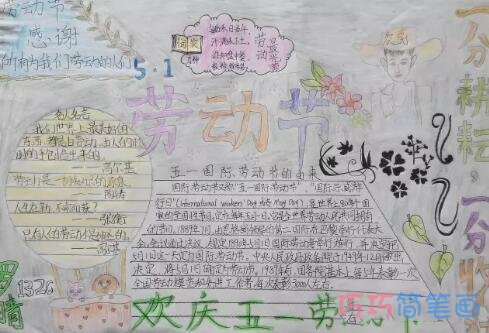 劳动节
感谢
所有为我们劳动的人们
5.1
劳动最光荣
劳动节
一分耕耘
一分收
名人名言
我们世界上最美好的
东西,都是由劳动、由人的聪
明的手创造出来的。
高尔基
人生在勤,不索何获?
张衡
只有人的劳动才是神圣的。
高尔基
五一国际劳动节的由来
国际劳动节又称“五一国际劳动节”、“国际示威游
行日”(International Workers' Day 或者 May Day),是世界上80多个国
家的全国性节日。定在每年的五月一日。它是全世界劳动人民共同拥有
的节日。1889年7月,由恩格斯领导的第二国际在巴黎举行代表大
会。会议通过决议,规定1890年5月1日国际劳动者举行游行,并决定把
5月1日这一天定为国际劳动节。中央人民政府政务院于1949年12月作出
决定,将5月1日确定为劳动节。1989年后,国务院基本上每5年表彰一次
全国劳动模范和先进工作者,每次表彰3000人左右。
1326
欢庆五一劳动节
巧巧简笔画